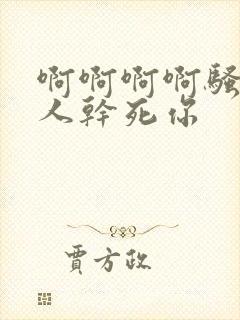 啊啊啊啊骚
人幹死你
賈方政